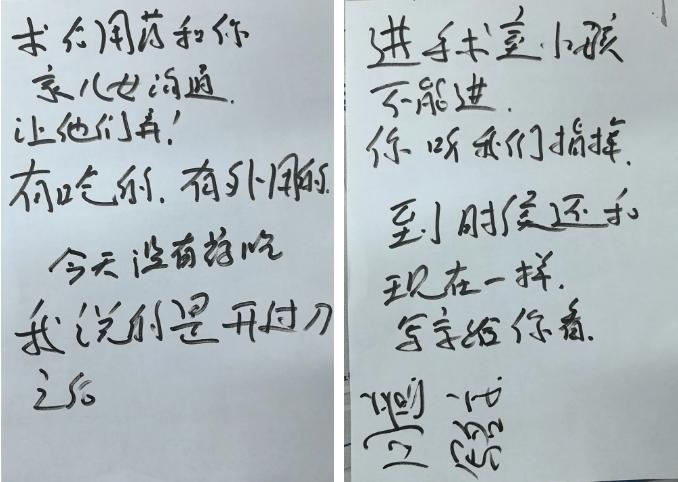 术后用药和你
家儿女沟通.
让他们弄!
有吃的.有外用的.
今天没有药吃
我说的是开过刀
之后
进手术室.小孩
不能进.
你听我们指挥.
到时候还和
现在一样.
写字给你看.